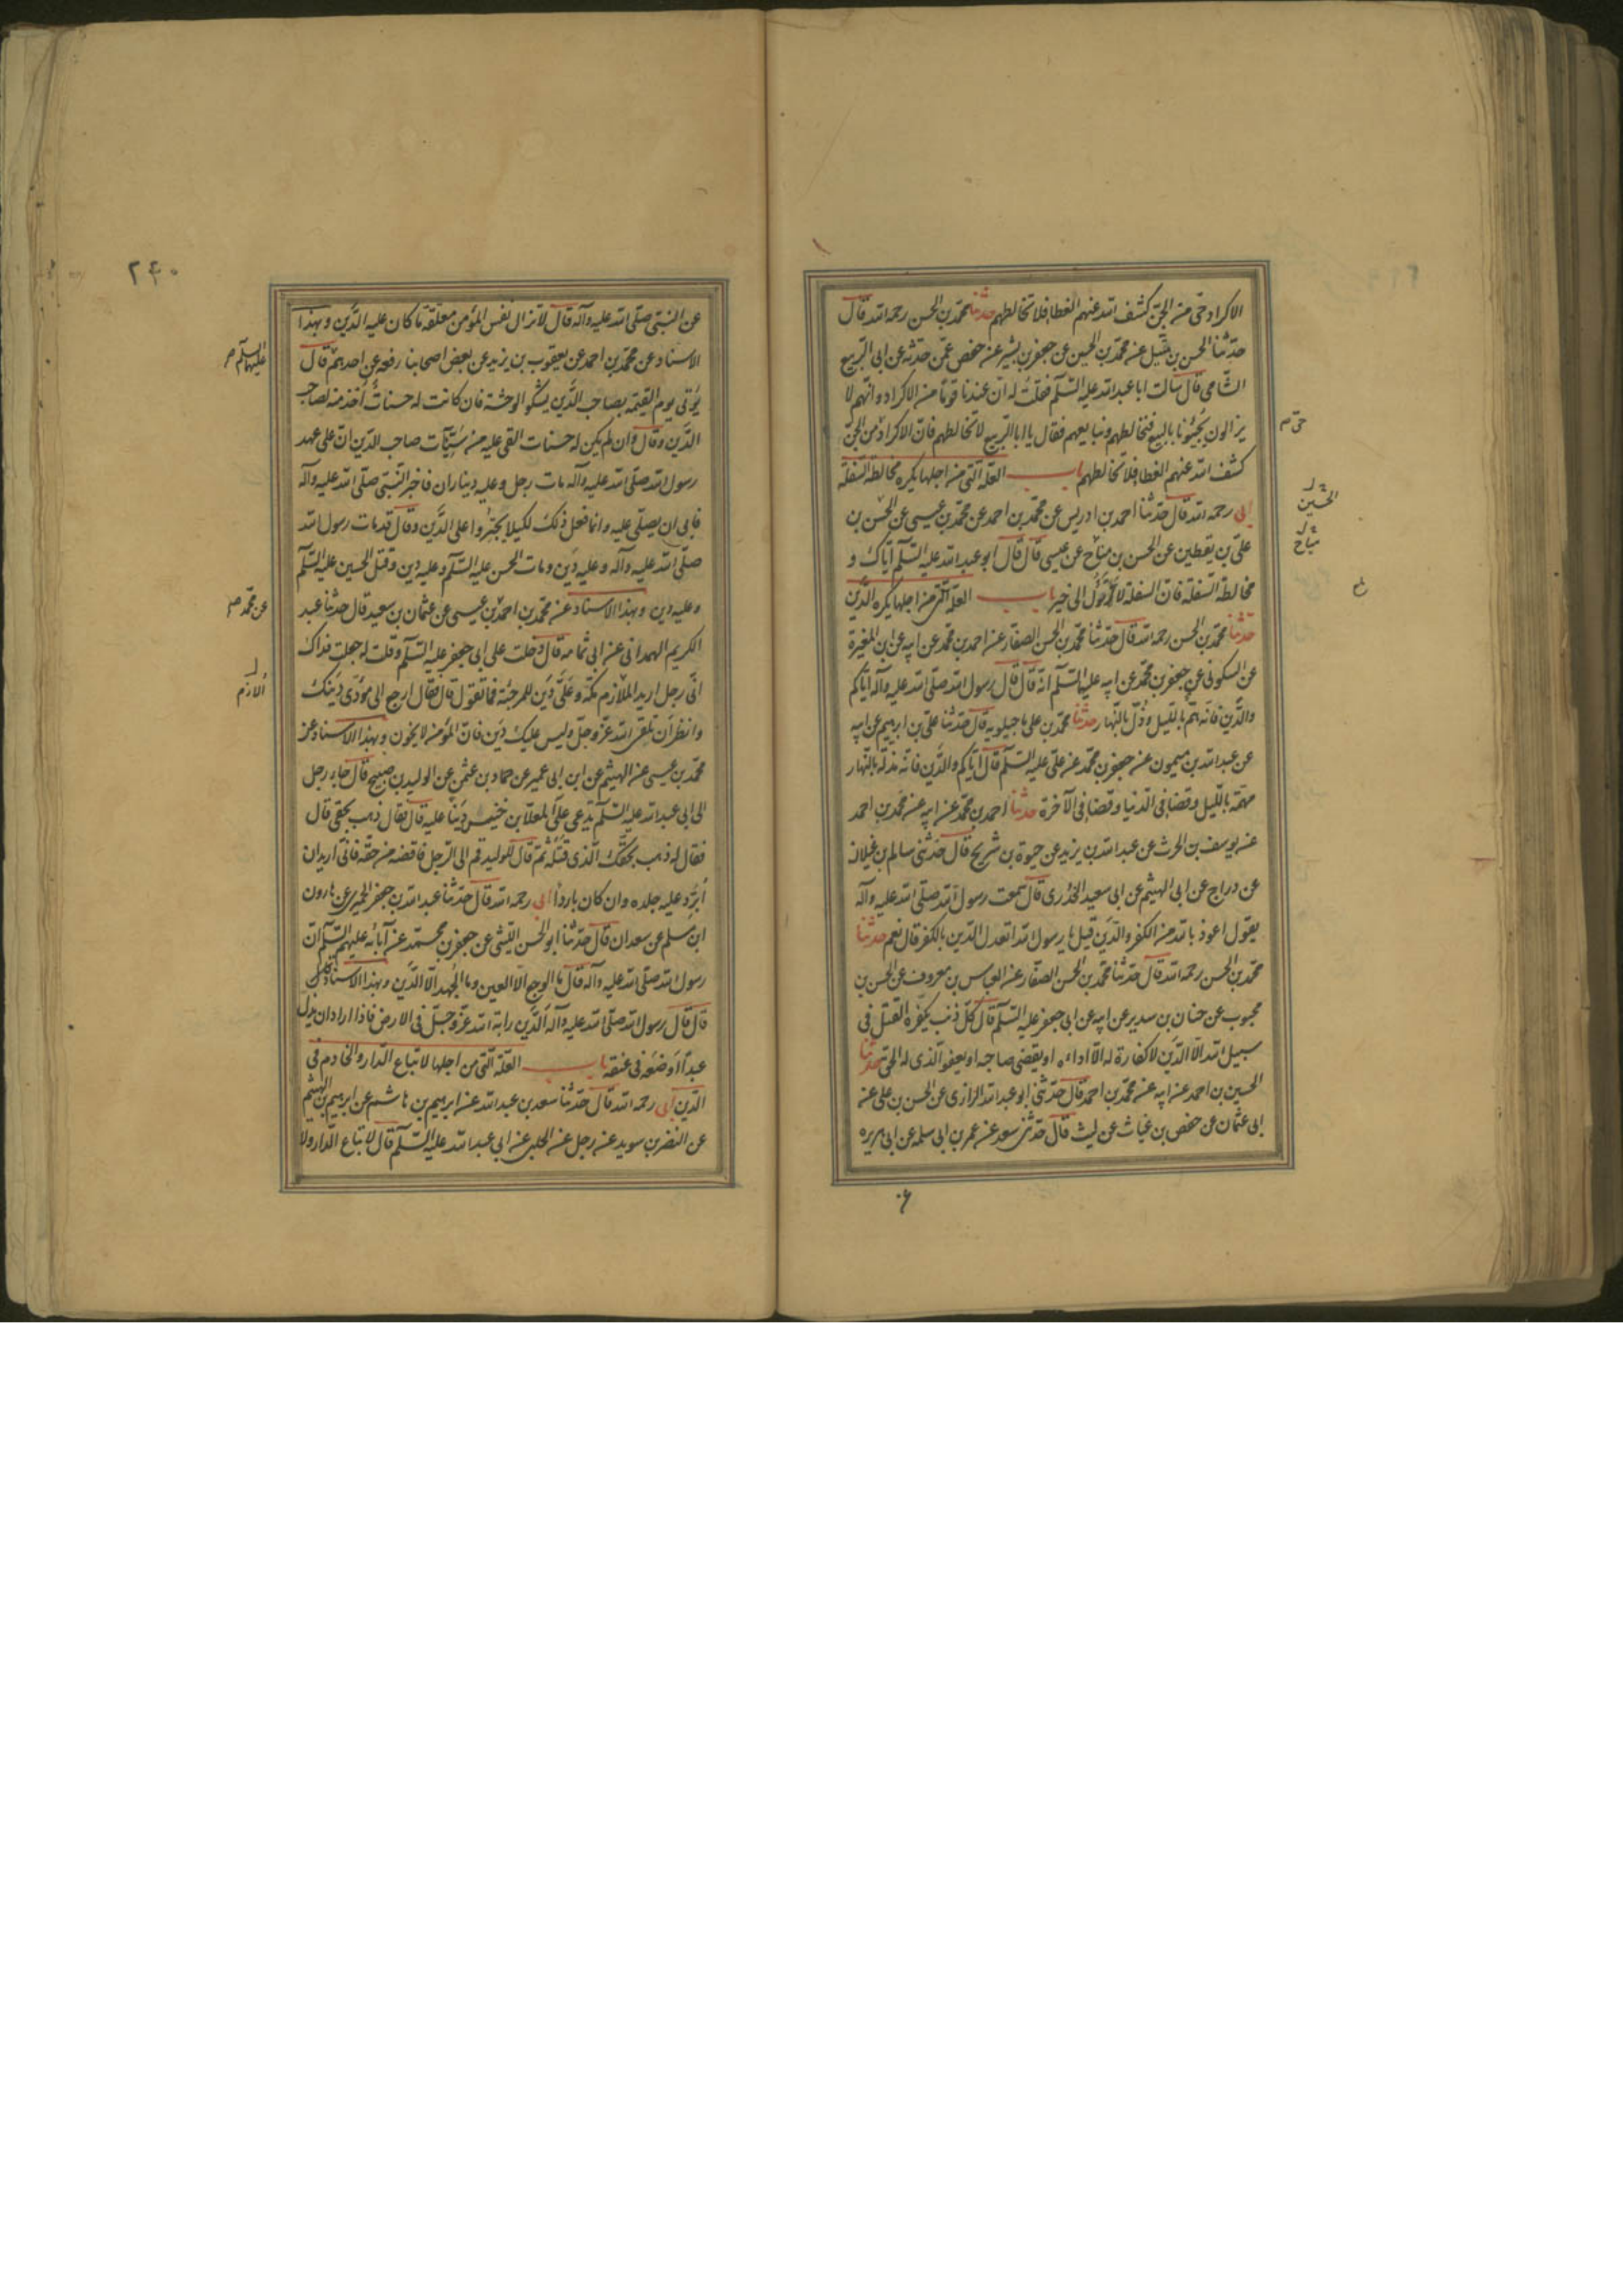 الاكراد حي من الجن كشف الله عنهم الغطا فلا تخالطهم حدثنا محمد بن الحسن رحمه الله قال
حدثنا الحسن بن متيل عن محمد بن الحسين عن جعفر بن بشير عن حفص عمن حدثه عن ابى الربيع
الشامى قال سالت ابا عبد الله عليه السلم فقلت له ان عندنا قوما من الاكراد وانهم لا
يزالون يجيئونا بالبيع فنخالطهم ونبايعهم فقال يا ابا الربيع لا تخالطهم فان الاكراد من الجن
حى م
كشف الله عنهم الغطا فلا تخالطهم باب العلة التى من اجلها يكره مخالطة السفلة
ابى رحمه الله قال حدثنا احمد بن ادريس عن محمد بن احمد عن محمد بن عيسى عن الحسن بن
الحسين
على بن يقطين عن الحسن بن مياح عن عيسى قال قال ابو عبد الله عليه السلم اياك و
مياح
مخالطة السفلة فان السفلة لا يؤل الى خير باب العلة التى من اجلها يكره الدين
حدثنا محمد بن الحسن رحمه الله قال حدثنا محمد بن الحسن الصفار عن احمد بن محمد عن ابيه عن ابن المغيرة
عن السكونى عن جعفر بن محمد عن ابيه عليه السلم انه قال قال رسول الله صلى الله عليه وآله اياكم
والدين فانه هم بالليل وذل بالنهار حدثنا محمد بن على ماجيلويه قال حدثنا على بن ابرهيم عن ابيه
عن عبد الله بن ميمون عن جعفر بن محمد عن على عليه السلم قال اياكم والدين فانه مذلة بالنهار
مهمة بالليل وقضا فى الدنيا وقضا فى الآخرة حدثنا احمد بن محمد عن ابيه عن محمد بن احمد
عن يوسف بن الحرث عن عبد الله بن يزيد عن حيوة بن شريح قال حدثنى سالم بن غيلان
عن دراج عن ابى الهيثم عن ابى سعيد الخدرى قال سمعت رسول الله صلى الله عليه وآله
يقول اعوذ بالله من الكفر والدين قيل يا رسول الله اتعدل الدين بالكفر قال نعم حدثنا
محمد بن الحسن رحمه الله قال حدثنا محمد بن الحسن الصفار عن العباس بن معروف عن الحسن بن
محبوب عن حنان بن سدير عن ابيه عن ابى جعفر عليه السلم قال كل ذنب يكفره القتل فى
سبيل الله الا الدين لا كفارة له الا اداءه او يقضى صاحبه او يعفو الذى له الحق حدثنا
الحسين بن احمد عن ابيه عن محمد بن احمد قال حدثنى ابو عبد الله الرازى عن الحسن بن على عن
ابى عثمان عن حفص بن غياث عن ليث قال حدثنى سعد عن عمر بن ابى سلمه عن ابى هريره
عن
٢٤٠
عن النبى صلى الله عليه وآله قال لا تزال نفس المؤمن معلقة ما كان عليه الدين وبهذا
الاسناد عن محمد بن احمد عن يعقوب بن يزيد عن بعض اصحابنا رفعه عن احدهم قال
عليهما السلم
يؤتى يوم القيمة بصاحب الدين يشكو الوحشة فان كانت له حسنات اخذ منه لصاحب
الدين وقال وان لم يكن له حسنات القى عليه من سيئات صاحب الدين ان على عهد
رسول الله صلى الله عليه وآله مات رجل وعليه ديناران فاخبر النبى صلى الله عليه وآله
فابى ان يصلى عليه وانما فعل ذلك لكيلا يجتروا على الدين وقال قد مات رسول الله
صلى الله عليه وآله وعليه دين ومات الحسن عليه السلم وعليه دين وقتل الحسين عليه السلم
وعليه دين وبهذا الاسناد عن محمد بن احمد بن عيسى عن عثمان بن سعيد قال حدثنا عبد
عن محمد
الكريم الهمدانى عن ابى ثمامه قال دخلت على ابى جعفر عليه السلم وقلت له جعلت فداك
انى رجل اريد الملازم مكة وعلى دين للمرجئة فما تقول قال فقال ارجع الى مؤدى دينك
الازم
وانظر ان تلقى الله عز وجل وليس عليك دين فان المؤمن لا يخون وبهذا الاسناد عن
محمد بن عيسى عن الهيثم عن ابن ابى عمير عن حماد بن عثمن عن الوليد بن صبيح قال جاء رجل
الى ابى عبد الله عليه السلم يدعى على المعلا بن خنيس دينا عليه قال فقال ذهب بحقى قال
فقال له ذهب بحقك الذى قتله ثم قال للوليد قم الى الرجل فاقضه من حقه فانى اريد ان
ابرد عليه جلده وان كان باردا ابى رحمه الله قال حدثنا عبد الله بن جعفر الحميرى عن هارون
ابن مسلم عن سعدان قال حدثنا ابو الحسن الليثى عن جعفر بن محمد عن آبائه عليهم السلم ان
رسول الله صلى الله عليه وآله قال ما الوجع الا العين وما الجهد الا الدين وبهذا الاسناد
قال قال رسول الله صلى الله عليه وآله الدين راية الله عز وجل فى الارض فاذا اراد ان يذل
عبدا وضعه فى عنقه باب العلة التى من اجلها لا تباع الدار والخادم فى
الدين ابى رحمه الله قال حدثنا سعد بن عبد الله عن ابرهيم بن هاشم عن ابرهيم بن الهيثم
عن النضر بن سويد عن رجل عن الحلبى عن ابى عبد الله عليه السلم قال لا تباع الدار ولا